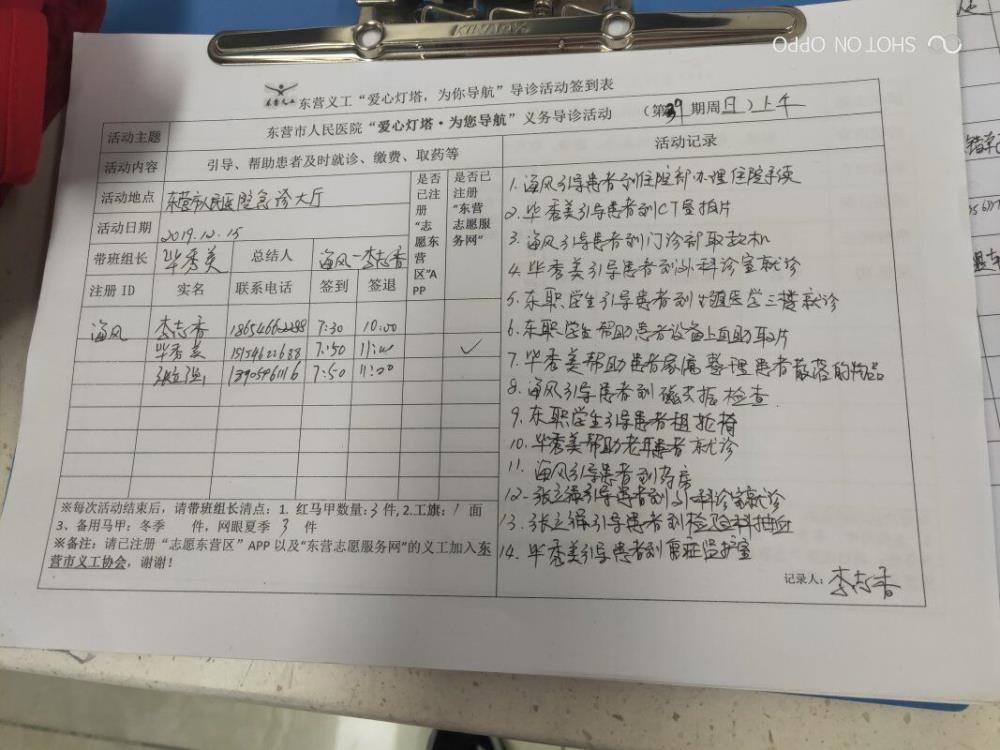 KINARY
SHOT ON OPPO
东营义工
东营义工“爱心灯塔，为你导航”导诊活动签到表
活动主题
东营市人民医院“爱心灯塔·为您导航”义务导诊活动
（第39期周日）上午
活动内容
引导、帮助患者及时就诊、缴费、取药等
活动地点
东营市人民医院急诊大厅
活动日期
2019.12.15
带班组长
毕秀美
总结人
海风-李志香
是否已注册“志愿东营区”APP
是否已注册“东营志愿服务网”
注册ID 实名 联系电话 签到 签退
海风 李志香 7:30 10:00
毕秀美 7:50 ✓
7:50 11:00
※每次活动结束后，请带班组长清点：1. 红马甲数量:3件, 2.工旗: 1 面
3、备用马甲：冬季 件，网眼夏季 3 件
※备注：请已注册“志愿东营区”APP 以及“东营志愿服务网”的义工加入东
营市义工协会，谢谢！
活动记录
1. 海风引导患者到住院部办理住院手续
2. 毕秀美引导患者到CT室拍片
3. 海风引导患者到门诊部取款机
4. 毕秀美引导患者到外科诊室就诊
5. 东职学生引导患者到 医学三楼就诊
6. 东职学生帮助患者设备上自助取片
7. 毕秀美帮助患者家属整理患者散落的物品
8. 海风引导患者到磁共振检查
9. 东职学生引导患者租轮椅
10. 毕秀美帮助老年患者就诊
11. 海风引导患者到药房
12. 张立强引导患者到外科诊室就诊
13. 张立强引导患者到检验科抽血
14. 毕秀美引导患者到重症监护室
记录人：李志香